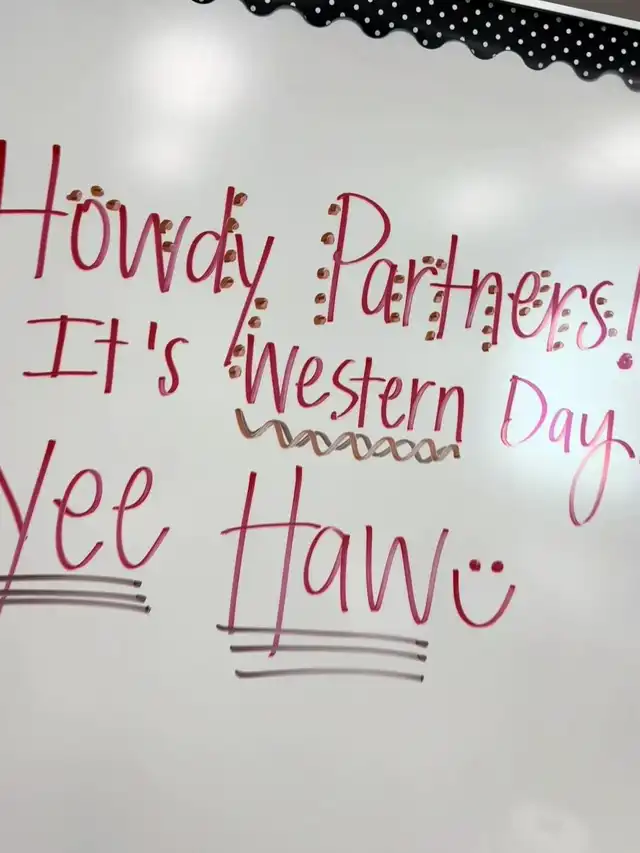 Howdy Partners!
It's Western Day!
Yee Haw